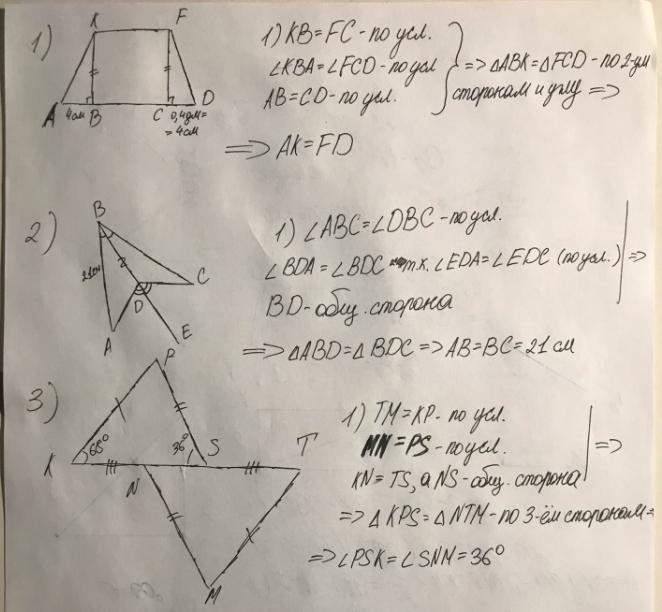 1)
K F
A 4см B C 0,4дм= D
= 4см
1) KB = FC - по усл.
∠KBA = ∠FCD - по усл
AB = CD - по усл.
=> ΔABK = ΔFCD - по 2-ум
сторонам и углу =>
=> AK = FD
2)
B
21см
2
C
D
A
E
1) ∠ABC = ∠DBC - по усл.
∠BDA = ∠BDC т.к. ∠EDA = ∠EDC (по усл.) =>
BD - общ. сторона
=> ΔABD = ΔBDC => AB = BC = 21 см
3)
P
K 68° 36° S T
N
M
1) TM = KP - по усл.
MN = PS - по усл.
KN = TS, а NS - общ. сторона
=>
=> ΔKPS = ΔNTM - по 3-ём сторонам =
=> ∠PSK = ∠SNM = 36°